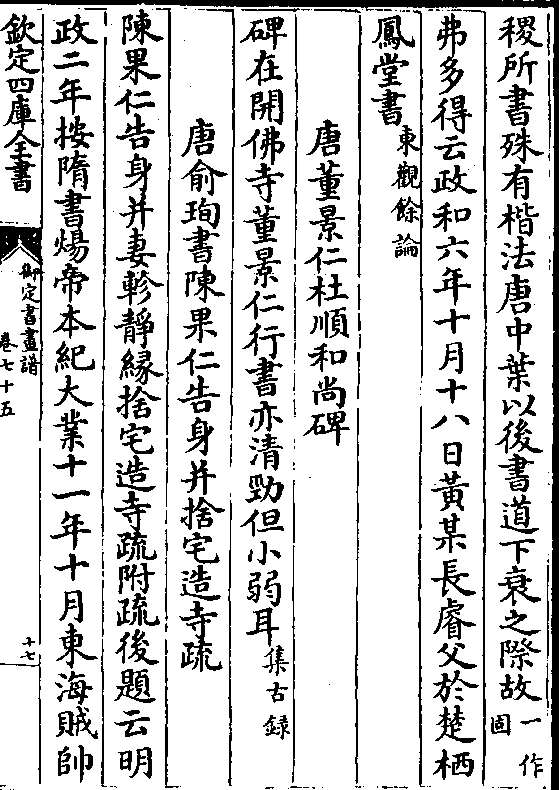 稷所書殊有楷法唐中葉以後書道下衰之際故一作固
弗多得云政和六年十月十八日黃某長睿父於楚栖
鳳堂書東觀餘論
唐董景仁杜順和尚碑
碑在開佛寺董景仁行書亦清勁但小弱耳集古録
唐俞珣書陳果仁告身并捨宅造寺疏
陳果仁告身并妻軫靜緣捨宅造寺疏附疏後題云明
政二年按隋書煬帝本紀大業十一年十月東海賊帥
欽定四庫全書
御定書畫譜
卷七十五
十七